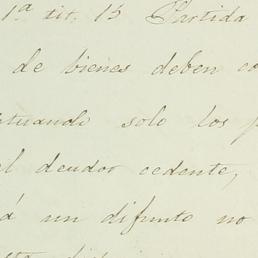 1ª tit. 15 Partida
de bienes deben
solo los
el deudor cedente,
á un difunto no